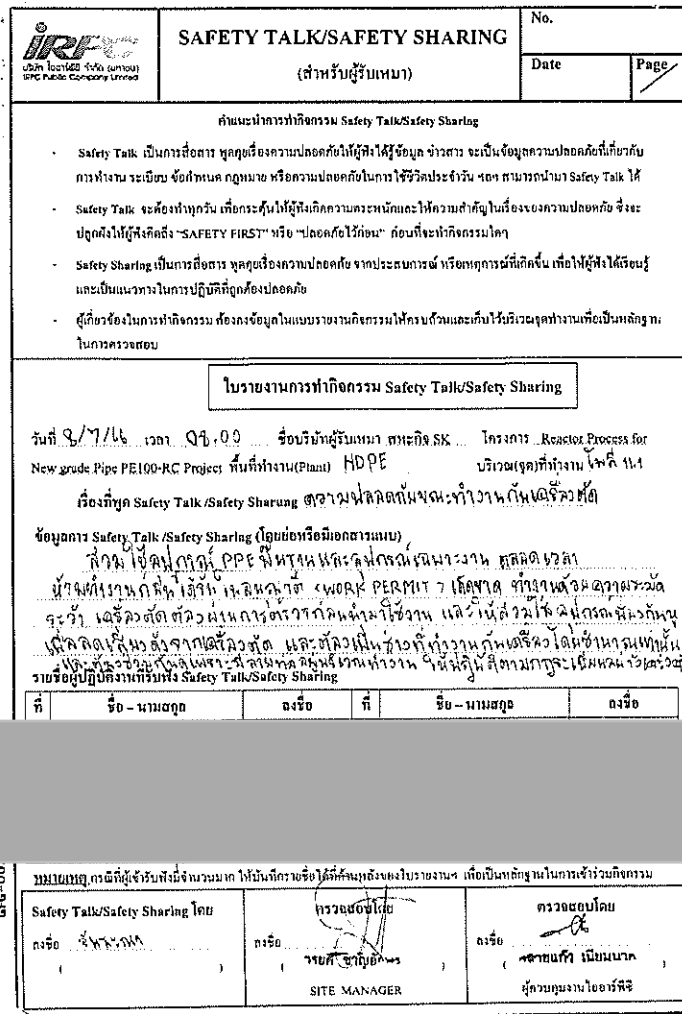 IRPC
บริษัท ไออาร์พีซี จำกัด (มหาชน)
IRPC Public Company Limited
SAFETY TALK/SAFETY SHARING
(สำหรับผู้รับเหมา)
No.
Date
Page
คำแนะนำการทำกิจกรรม Safety Talk/Safety Sharing
- Safety Talk เป็นการสื่อสาร พูดคุยเรื่องความปลอดภัยให้ผู้ฟังได้รู้ข้อมูล ข่าวสาร จะเป็นข้อมูลความปลอดภัยที่เกี่ยวกับ
การทำงาน ระเบียบ ข้อกำหนด กฎหมาย หรือความปลอดภัยในการใช้ชีวิตประจำวัน ฯลฯ สามารถนำมา Safety Talk ได้
- Safety Talk จะต้องทำทุกวัน เพื่อกระตุ้นให้ผู้ฟังเกิดความตระหนักและให้ความสำคัญในเรื่องของความปลอดภัย ซึ่งจะ
ปลูกฝังให้ผู้ฟังคิดถึง "SAFETY FIRST" หรือ "ปลอดภัยไว้ก่อน" ก่อนที่จะทำกิจกรรมใดๆ
- Safety Sharing เป็นการสื่อสาร พูดคุยเรื่องความปลอดภัย จากประสบการณ์ หรือเหตุการณ์ที่เกิดขึ้น เพื่อให้ผู้ฟังได้เรียนรู้
และเป็นแนวทางในการปฏิบัติที่ถูกต้องปลอดภัย
- ผู้เกี่ยวข้องในการทำกิจกรรม ต้องลงข้อมูลในแบบรายงานกิจกรรมให้ครบถ้วนและเก็บไว้บริเวณจุดทำงานเพื่อเป็นหลักฐาน
ในการตรวจสอบ
ใบรายงานการทำกิจกรรม Safety Talk/Safety Sharing
วันที่ 8/7/66 เวลา 08.00 ชื่อบริษัทผู้รับเหมา สหะกิจ SK โครงการ Reactor Process for
New grade Pipe PE100-RC Project พื้นที่ทำงาน(Plant) HDPE บริเวณ(จุด)ที่ทำงาน 11.1
เรื่องที่พูด Safety Talk /Safety Sharung ความปลอดภัยขณะทำงานกับเครื่องตัด
ข้อมูลการ Safety Talk /Safety Sharing (โดยย่อหรือมีเอกสารแนบ)
สวมใส่อุปกรณ์ PPE พื้นฐานและอุปกรณ์เฉพาะงาน ตลอดเวลา
ห้ามทำงานก่อนได้รับใบอนุญาต <WORK PERMIT> เด็ดขาด ทำงานด้วยความระมัด
ระวัง เครื่องตัดต้องผ่านการตรวจก่อนนำมาใช้งาน และให้สวมใส่อุปกรณ์ป้องกันหู
เพื่อลดเสียงดังจากเครื่องตัด และต้องเป็นช่างที่ทำงานกับเครื่องโดยชำนาญเท่านั้น
รายชื่อผู้ปฏิบัติงานที่รับฟัง Safety Talk/Safety Sharing
ที่ ชื่อ – นามสกุล ลงชื่อ ที่ ชื่อ – นามสกุล ลงชื่อ
หมายเหตุ กรณีที่ผู้เข้ารับฟังมีจำนวนมาก ให้บันทึกรายชื่อได้ที่ด้านหลังของใบรายงานฯ เพื่อเป็นหลักฐานในการเข้าร่วมกิจกรรม
Safety Talk/Safety Sharing โดย
ลงชื่อ
( )
ตรวจสอบโดย
ลงชื่อ
( )
SITE MANAGER
ตรวจสอบโดย
ลงชื่อ
( นายแก้ว เนียมนาค )
ผู้ควบคุมงานไออาร์พีซี